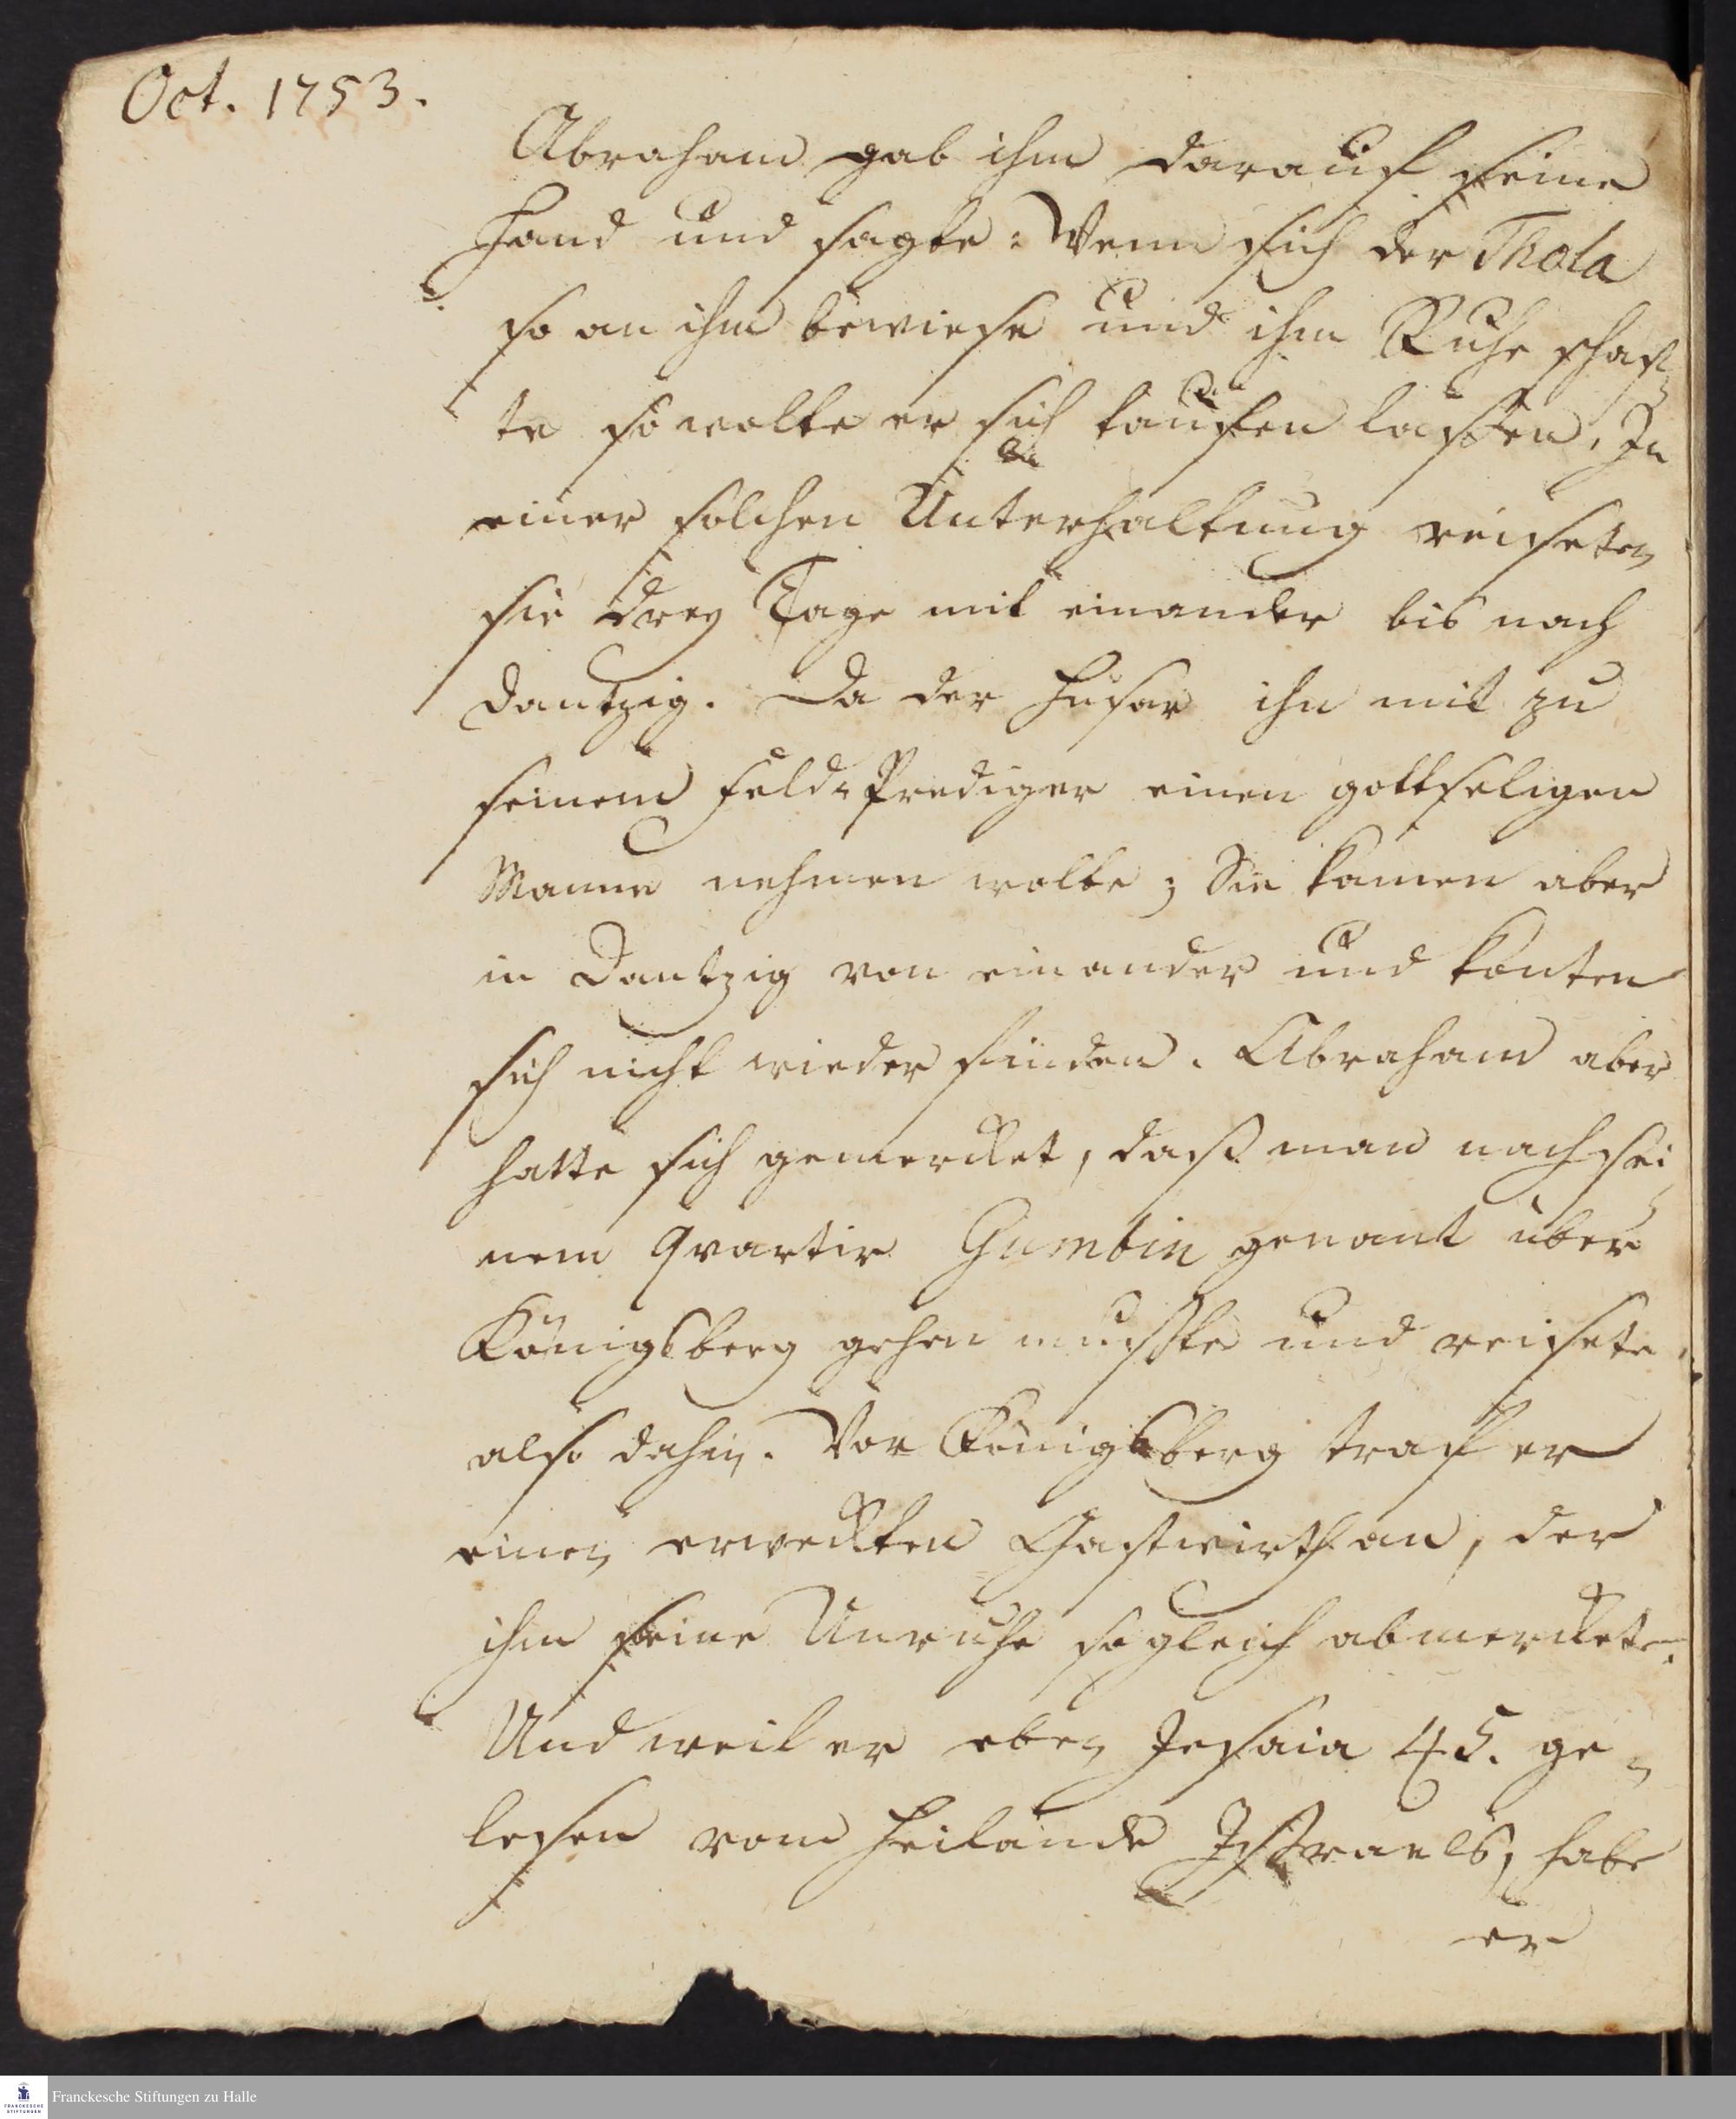 Oct. 1753.
Abraham gab ihm darauf seine
Hand und sagte: Wenn sich der Thola
so an ihm bewiese und ihm Ruhe schaf
te so wolte er sich tauffen lassen. In
einer solchen Unterhaltung reiseten
sie drey Tage mit einander bis nach
Dantzig. Da der Husar ihn mit zu
seinem Feld-Prediger einen gottseligen
Manne nehmen wolte; Sie kamen aber
in Dantzig von einander und konten
sich nicht wieder finden. Abraham aber
hatte sich gemercket, daß man nach sei
nem Qvartir Gumbin genant über
Königsberg gehen musste und reisete
also dahin. Vor Königsberg traf er
einen erweckten Gastwirth an, der
ihm seine Unruhe sogleich abmerckete.
Und weil er eben Jesaia 45. ge-
lesen vom Heilande Israels, habe
er
Franckesche Stiftungen zu Halle
FRANCKESCHE
STIFTUNGEN